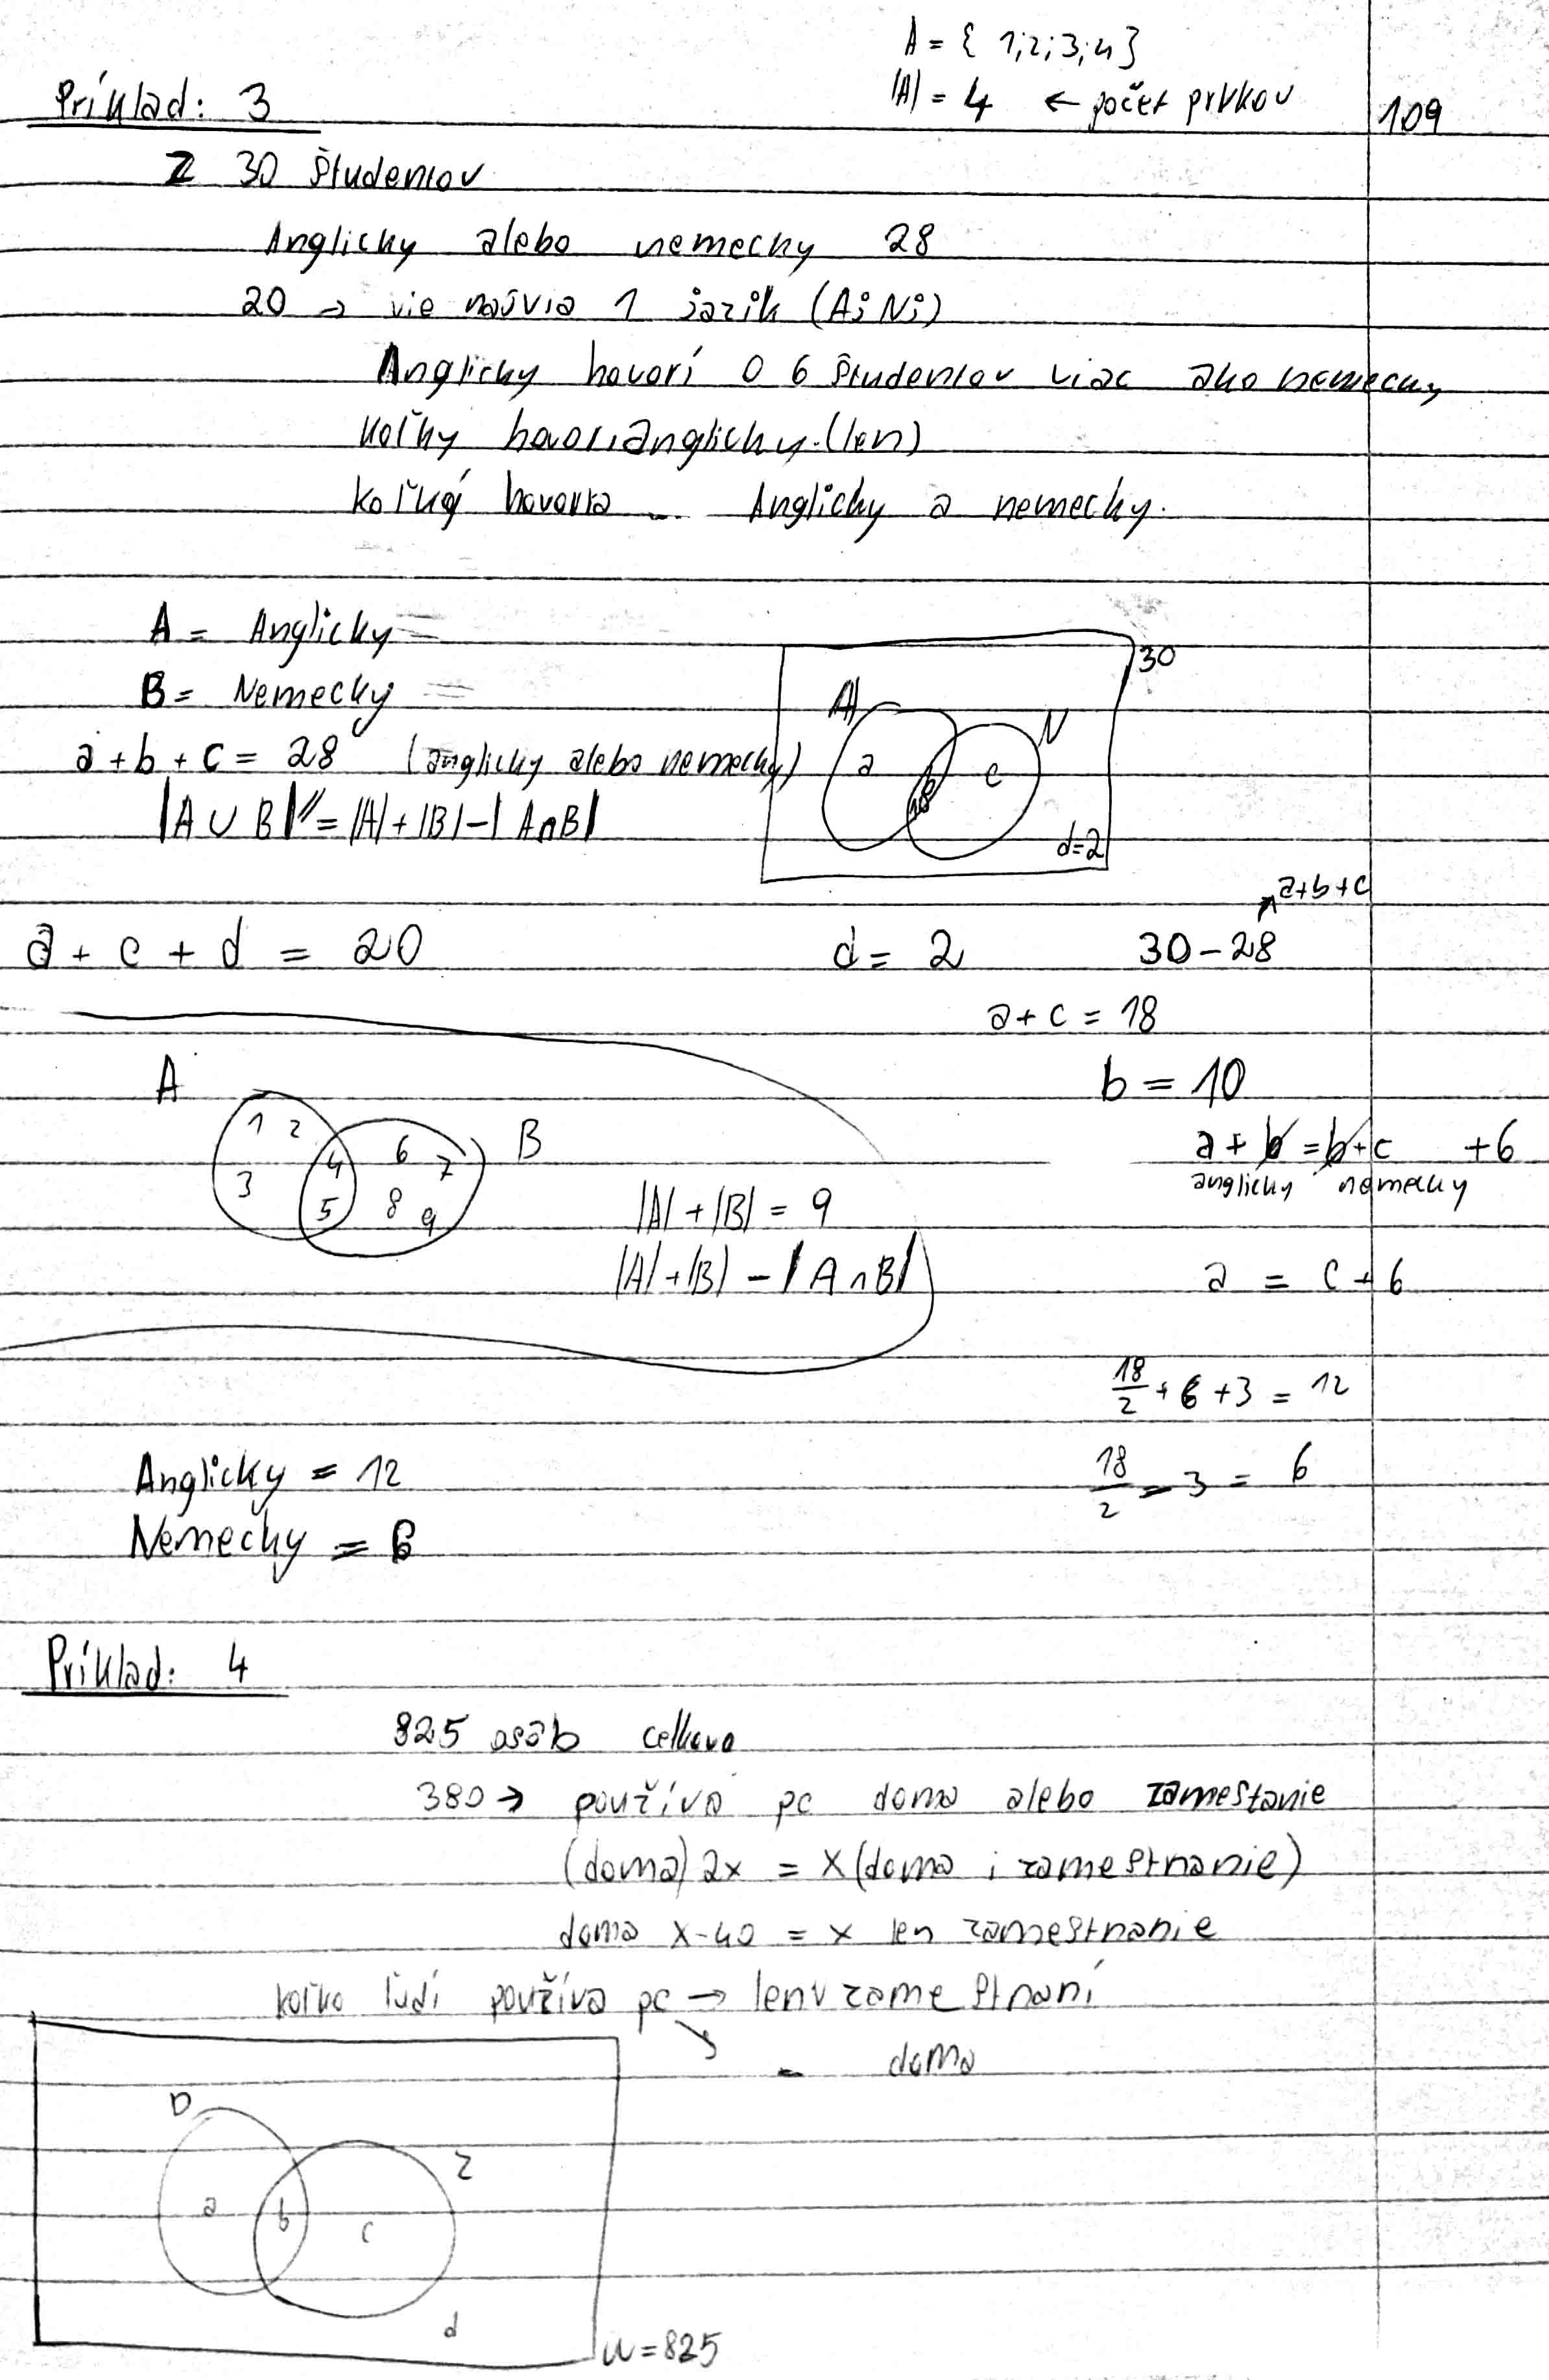 A = { 1;2;3;4}
|A| = 4 ← počet prvkov
109
Príklad: 3
Z 30 študentov
Anglicky alebo nemecky 28
20 → vie 1 jazik (Aj Nj)
Anglicky hovorí o 6 študentov viac ako nemecky
koľky hovorianglicky.(len)
koľký Anglicky a nemecky.
A = Anglicky =
B = Nemecky =
30
A
N
a + b + c = 28 (anglicky alebo nemecky)
a b c
|A ∪ B| = |A| + |B| - | A∩B|
d=2
a+b+c
a + c + d = 20
d = 2
30 - 28
a + c = 18
A
b = 10
1 2
B
6
a + b = b + c + 6
4 7
3
anglicky nemecky
5 8 9
|A| + |B| = 9
|A| + |B| - | A ∩ B|
a = c + 6
18/2 + 6 + 3 = 12
Anglicky = 12
18/2 - 3 = 6
Nemecky = 6
Príklad: 4
825 osôb celkovo
380 → používa pc doma alebo zamestanie
(doma) 2x = x (doma i zamestnanie)
doma x-40 = x len zamestnanie
koľko ľudí používa pc → lenv zamestnaní
- doma
D
Z
a b c
d
u = 825